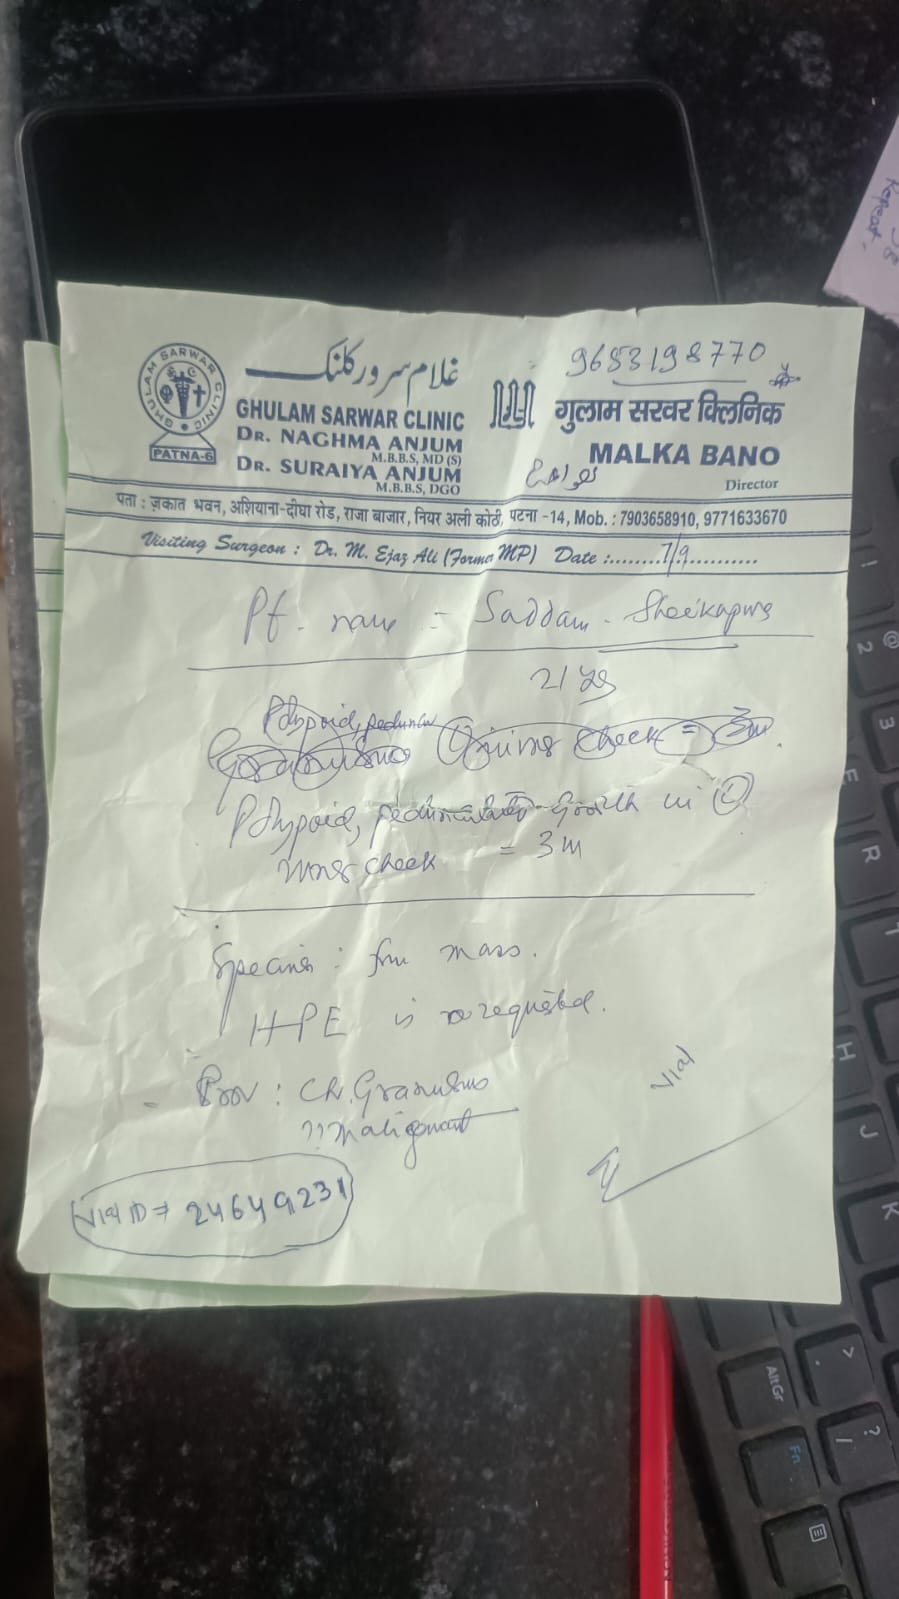 9653198770
غلام سرور کلنک
GHULAM SARWAR CLINIC
PATNA-6
गुलाम सरवर क्लिनिक
DR. NAGHMA ANJUM
M.B.B.S, MD (S)
MALKA BANO
DR. SURAIYA ANJUM
M.B.B.S, DGO
Director
पता : ज़कात भवन, अशियाना-दीघा रोड, राजा बाजार, नियर अली कोठी, पटना -14, Mob. : 7903658910, 9771633670
Visiting Surgeon : Dr. M. Ejaz Ali (Former MP) Date :........7/9...........
Pt. name = Saddam - Sheikhpura
21 yrs
Polypoid, peduncu
check = 3m
Polypoid, pedunculated growth in (L)
inner cheek = 3m
Specimen : from mass.
HPE is requested.
Prov : Ch. Granuloma
?? malignant
Vial
Vial ID ⇒ 24649231
Repeat